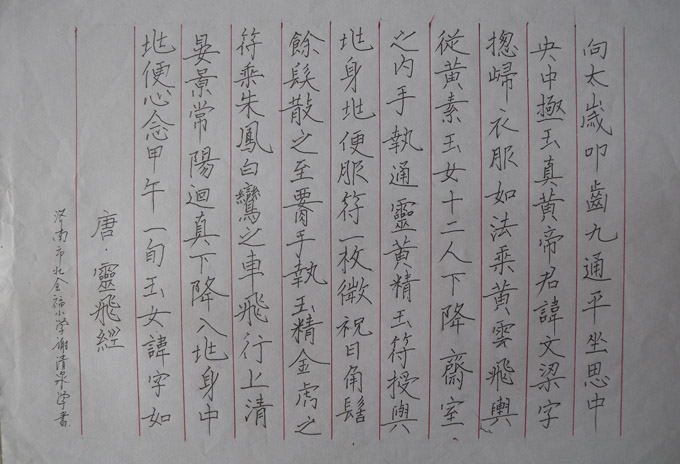 向太歲叩齒九通平坐思中
央中極玉真黄帝君諱文梁字
揔歸衣服如法乘黄雲飛輿
從黄素玉女十二人下降齋室
之内手執通靈黄精玉符授與
兆身兆便服符一枚微祝曰角髻
餘髮散之至腰手執玉精金虎之
符乘朱鳳白鸞之車飛行上清
晏景常陽迴真下降入兆身中
兆便心念甲午一旬玉女諱字如
唐·靈飛經
济南市北全福小学谢清泉学书